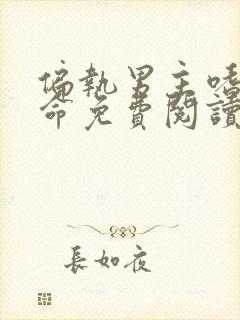 偏執男主嗜
命免費閱讀
長如夜